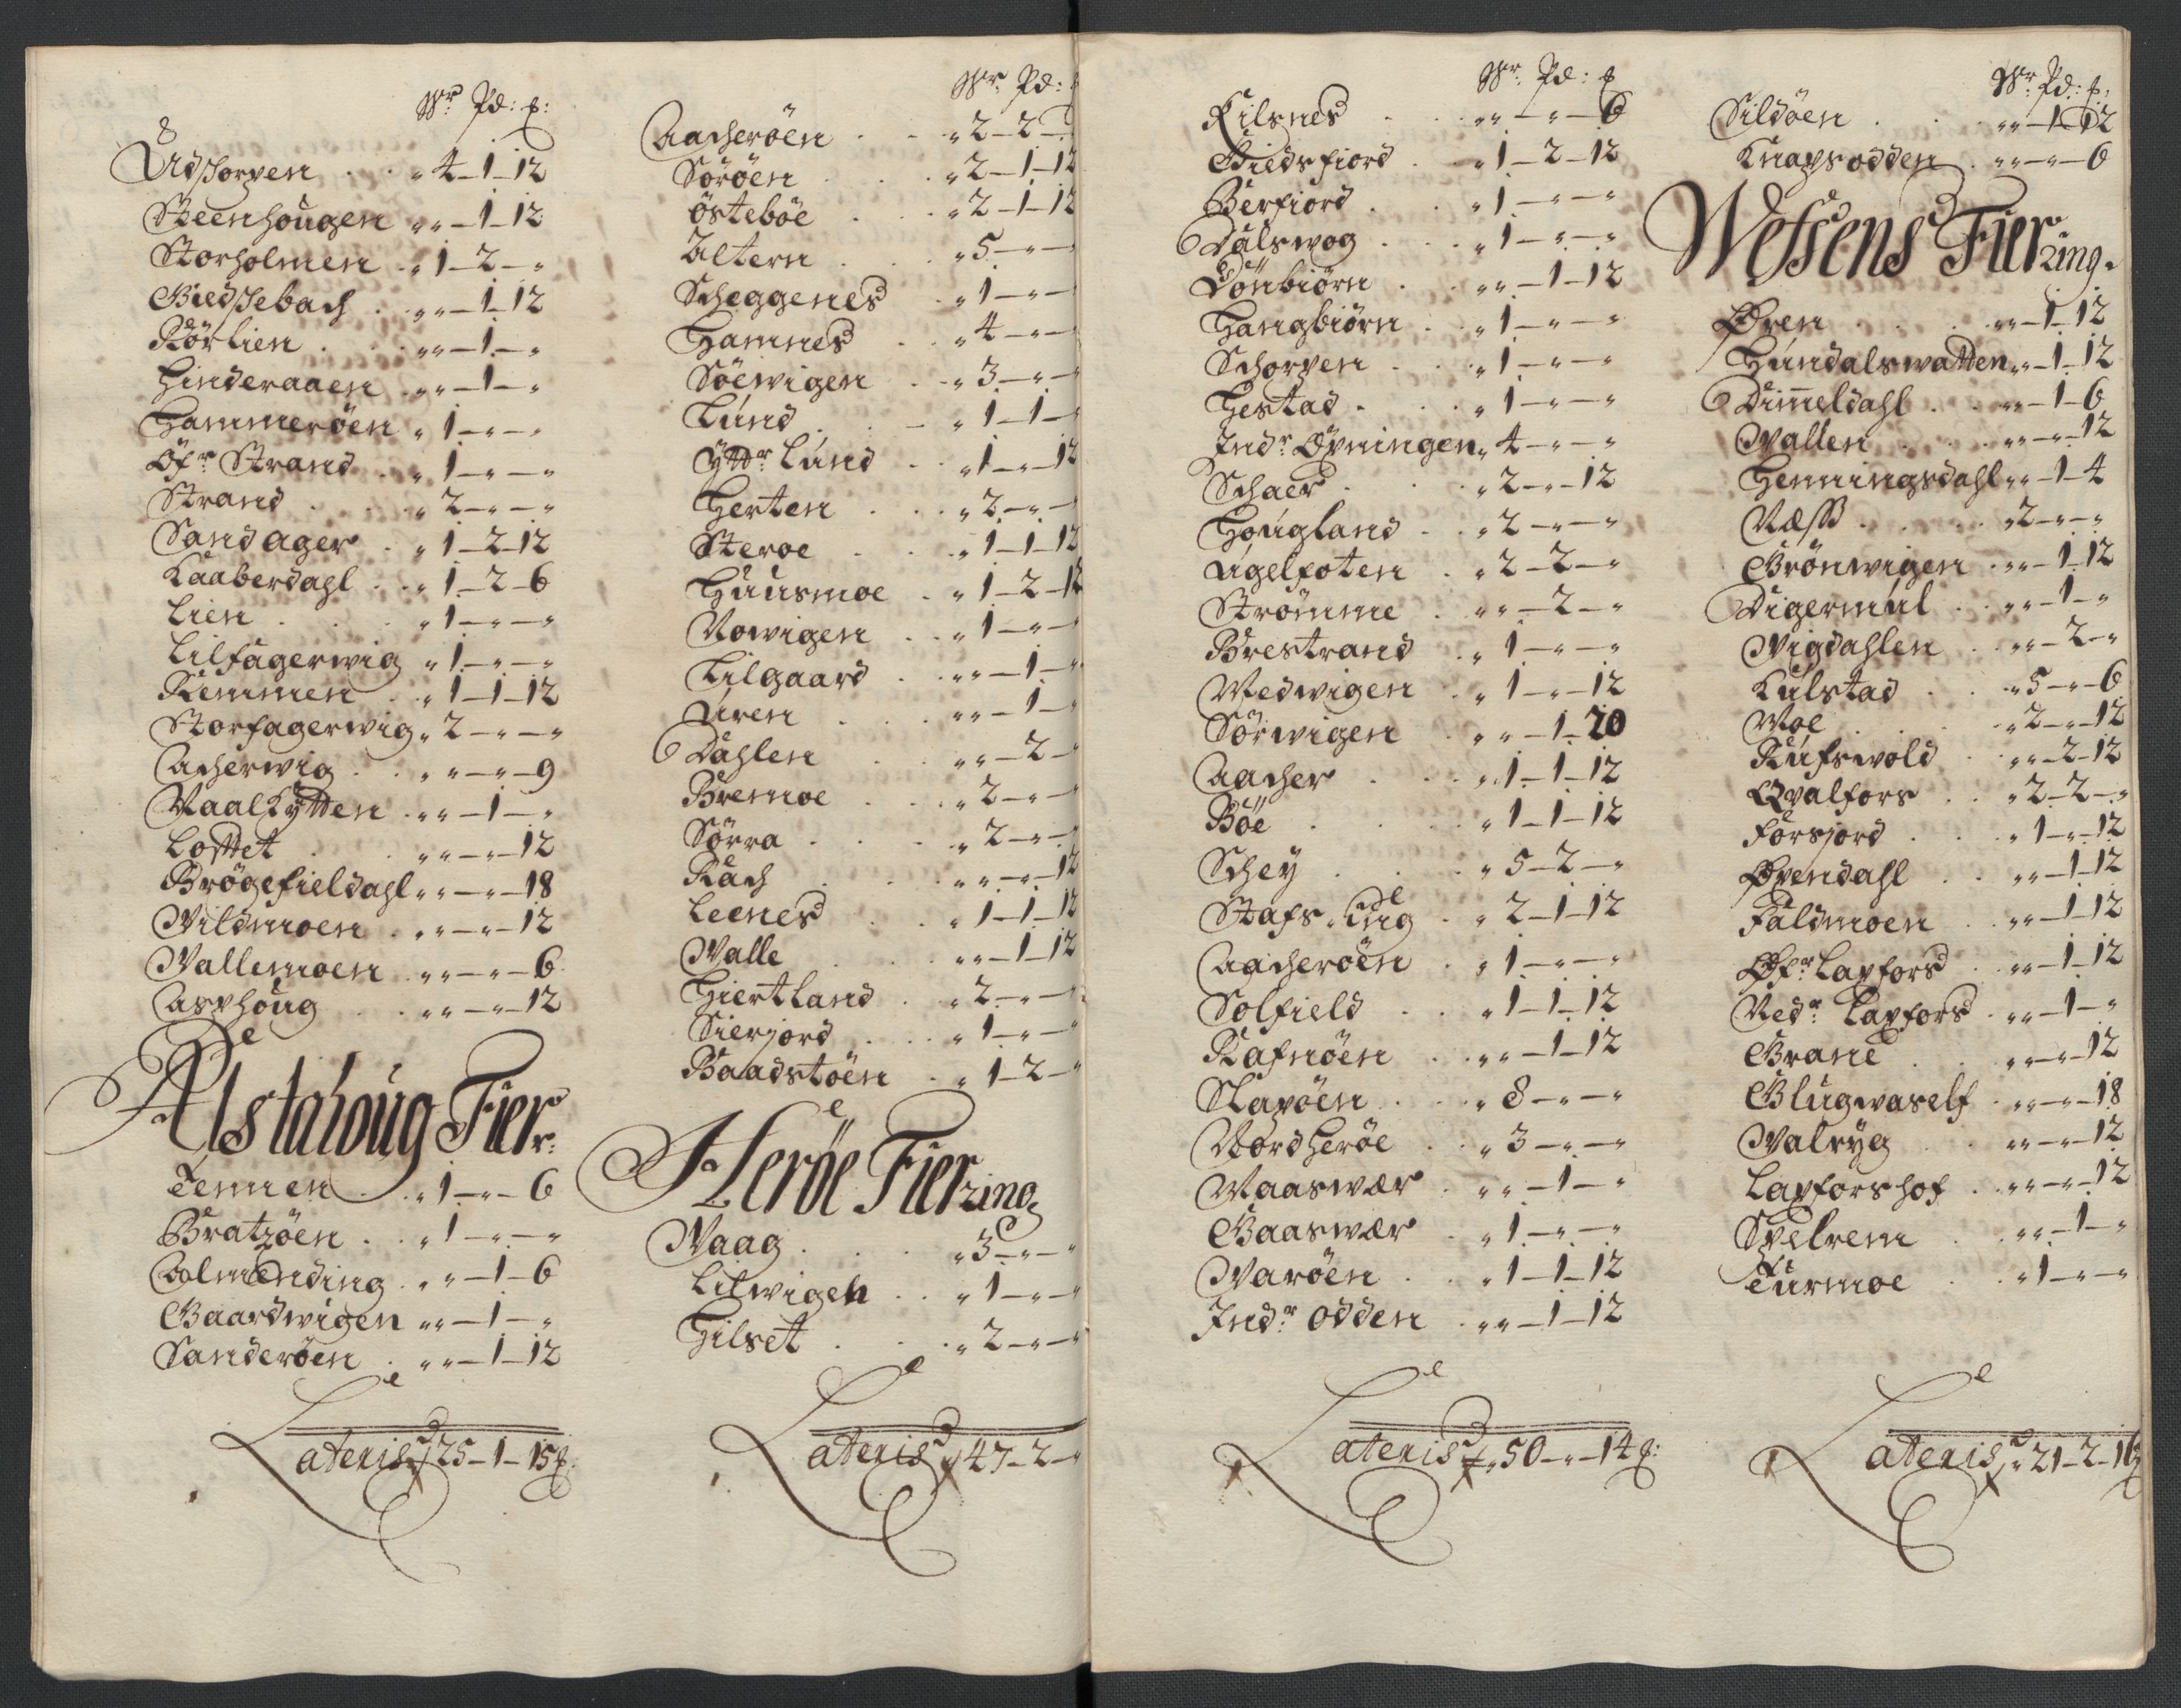 Wr Pd: £:
Udschorpen . . „ 4 – 1 – 12
Steenhougen „ „ – 1 – 12
Storholmen . „ 1 – 2 – „
Biedschebach . „ „ – 1 – 12
Rörlien . . „ „ – 1 – „
Hinderaaen . „ „ – 1 – „
Hammeröen „ 1 – „ – „
Öfr Strand . „ 1 – „ – „
Strand . . „ 2 – „ – „
Sandager . „ 1 – 2 – 12
Kaaberdahl . „ 1 – 2 – 6
Lien . . „ 1 – „ – „
Lilfagerwig „ 1 – „ – „
Remmen . „ 1 – 1 – 12
Storfagerwig „ 2 – „ – „
Acherwig . „ „ – „ – 9
Maalkytten . „ „ – 1 – „
Loftet . „ „ – „ – 12
Brögefieldahl „ „ – „ – 18
Vildmoen . „ „ – „ – 12
Vallemoen . „ „ – „ – 6
Asphoug . „ „ – „ – 12
Alstahoug Fierr:
Tennen . „ 1 – „ – 6
Bratzöen . „ 1 – „ – „
Almending . „ „ – 1 – 6
Gaardwigen „ „ – 1 – „
Sanderöen . „ „ – 1 – 12
Lateris „ 25 – 1 – 15 £:
Wr Pd:
Aacheröen . . „ 2 – 2 –
Söröen . . „ 2 – 1 – 12
Östeböe . . „ 2 – 1 – 12
Altern . . „ 5 – „ –
Scheggenes . „ 1 – „ –
Hamnes . „ 4 – „ –
Söewigen . „ 3 – „ –
Lund . . „ 1 – 1 –
Yttr Lund . „ 1 – „ – 12
Herten . . „ 2 – „ –
Steroe . . „ 1 – 1 – 12
Huusmoe . „ 1 – 2 – 12
Nowigen . . „ 1 – „ –
Lilgaard . „ „ – 1 –
Uren . . „ „ – 1 –
Dahlen . . „ „ – 2 –
Bremoe . . „ 2 – „ –
Sörra . . „ 2 – „ –
Rach . . „ „ – „ – 12
Leenes . . „ 1 – 1 – 12
Valle . . „ „ – 1 – 12
Hiertland . „ 2 – „ –
Sierjord . . „ 1 – „ –
Baadstöen . „ 1 – 2 – „
Heröe Fierzing
Vaag . . . „ 3 – „ – „
Lilwigen . . „ 1 – „ –
Hilset . . . „ 2 – „ –
Lateris „ 47 – 2 –
Wr Pd: £
Kilsnes . . „ „ – „ – 6
Biedsfiord . „ 1 – 2 – 12
Berfiord . . „ 1 – „ – „
Dalswog . . „ 1 – „ – „
Dönbiörn . „ „ – 1 – 12
Hangbiörn . „ 1 – „ – „
Schorpen . . „ 1 – „ – „
Hestad . . „ 1 – „ – „
Indr Øpningen „ 4 – „ – „
Schaer . . „ 2 – „ – 12
Hougland . . „ 2 – „ – „
Ugelfoten . „ 2 – 2 – „
Strömme . „ „ – 2 – „
Brestrand . „ 1 – „ – „
Medwigen . „ 1 – „ – 12
Sörwigen . „ „ – 1 – 20
Aacher . . „ 1 – 1 – 12
Böe . . „ 1 – 1 – 12
Schey . . „ 5 – 2 – „
Stafs. Lug . „ 2 – 1 – 12
Aacheröen . „ 1 – „ – „
Solfield . . „ 1 – 1 – 12
Rafnöen . „ „ – 1 – 12
Slapöen . . „ 8 – „ – „
Nordheröe . „ 3 – „ – „
Maaswær . „ „ – 1 – „
Gaaswær . „ 1 – „ – „
Varöen . . „ 1 – 1 – 12
Indr: Odden . „ „ – 1 – 12
Lateris „ 50 – „ – 14 £:
Wr Pd: £:
Sildöen . . „ „ – 1 – 12
Knapsodden . „ „ – „ – 6
Wefsens Fierzing.
Øren . . „ „ – 1 – 12
Hundalswatten „ „ – 1 – 12
Dimeldahl . „ „ – 1 – 6
Vallen . . „ „ – „ – 12
Henningsdahl „ „ – 1 – 4
Næss . . „ 2 – „ – „
Grönwigen . „ „ – 1 – 12
Digermul . . „ „ – 1 – „
Vigdahlen . „ „ – 2 – „
Kulstad . . „ 5 – „ – 6
Moe . . „ 2 – „ – 12
Kufswold . „ „ – 2 – 12
Qvalfors . . „ 2 – 2 – „
Forsjord . . „ 1 – „ – 12
Øvendahl . . „ „ – 1 – 12
Faldmoen . „ „ – 1 – 12
Øfr Lapfors . „ „ – 1 – 12
Nedr: Lapfors . „ „ – 1 – „
Grane . . „ „ – „ – 12
Glugwaself . „ „ – „ – 18
Valryg . . „ „ – „ – 12
Lapforshof . „ „ – „ – 12
Spelrem . . „ „ – 1 – „
Turmoe . . „ 1 – „ – „
Lateris „ 21 – 2 – 16